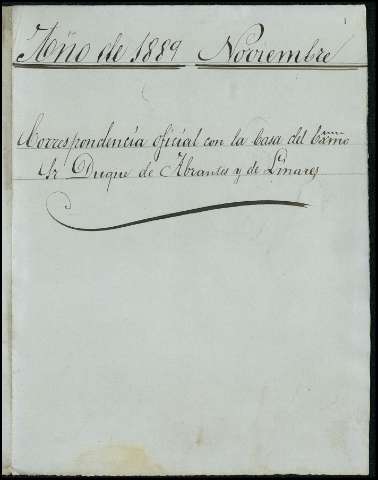 1
Año de 1889 Noviembre
Correspondencia oficial con la Casa del Exmo
Sr Duque de Abrantes y de Linares